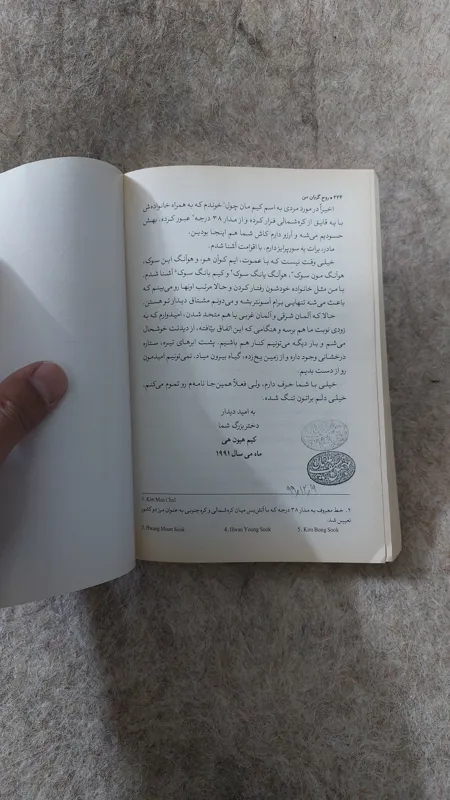 ۲۲۴ • روح گریان من
اخیراً در مورد مردی به اسم کیم مان چول¹ خوندم که به همراه خانواده‌ش
با یه قایق از کره‌شمالی فرار کرده و از مدار ۳۸ درجه² عبور کرده. بهش
حسودیم می‌شه و آرزو دارم کاش شما هم اینجا بودین.
مادر، برات یه سورپرایز دارم. با اقوامت آشنا شدم.
خیلی وقت نیست که با عموت، ایم کوان هو، و هوآنگ این سوک،
هوآنگ مون سوک³، هوآنگ یانگ سوک⁴ و کیم بانگ سوک⁵ آشنا شدم.
با من مثل خانواده خودشون رفتار کردن و حالا مرتب اونها رو می‌بینم که
باعث می‌شه تنهایی برام آسونتر بشه و می‌دونم مشتاق دیدار تو هستن.
حالا که آلمان شرقی و آلمان غربی با هم متحد شدن، امیدوارم که به
زودی نوبت ما هم برسه و هنگامی که این اتفاق بیُافته، از دیدنت خوشحال
می‌شم و بار دیگه می‌تونیم کنار هم باشیم. پشت ابرهای تیره، ستاره
درخشانی وجود داره و از زمین یخ‌زده، گیاه بیرون میاد. نمی‌تونیم امیدمون
رو از دست بدیم.
خیلی با شما حرف دارم، ولی فعلاً همین‌جا نامه‌م رو تموم می‌کنم.
خیلی دلم براتون تنگ شده.
به امید دیدار
دختر بزرگ شما
کیم هیون هی
ماه می سال ۱۹۹۱
1. Kim Man Chul
۲. خط معروف به مدار ۳۸ درجه که با آتش‌بس میان کره‌شمالی و کره‌جنوبی به عنوان مرز دو کشور
تعیین شد.
3. Hwang Moon Sook 4. Hwan Young Sook 5. Kim Bong Sook